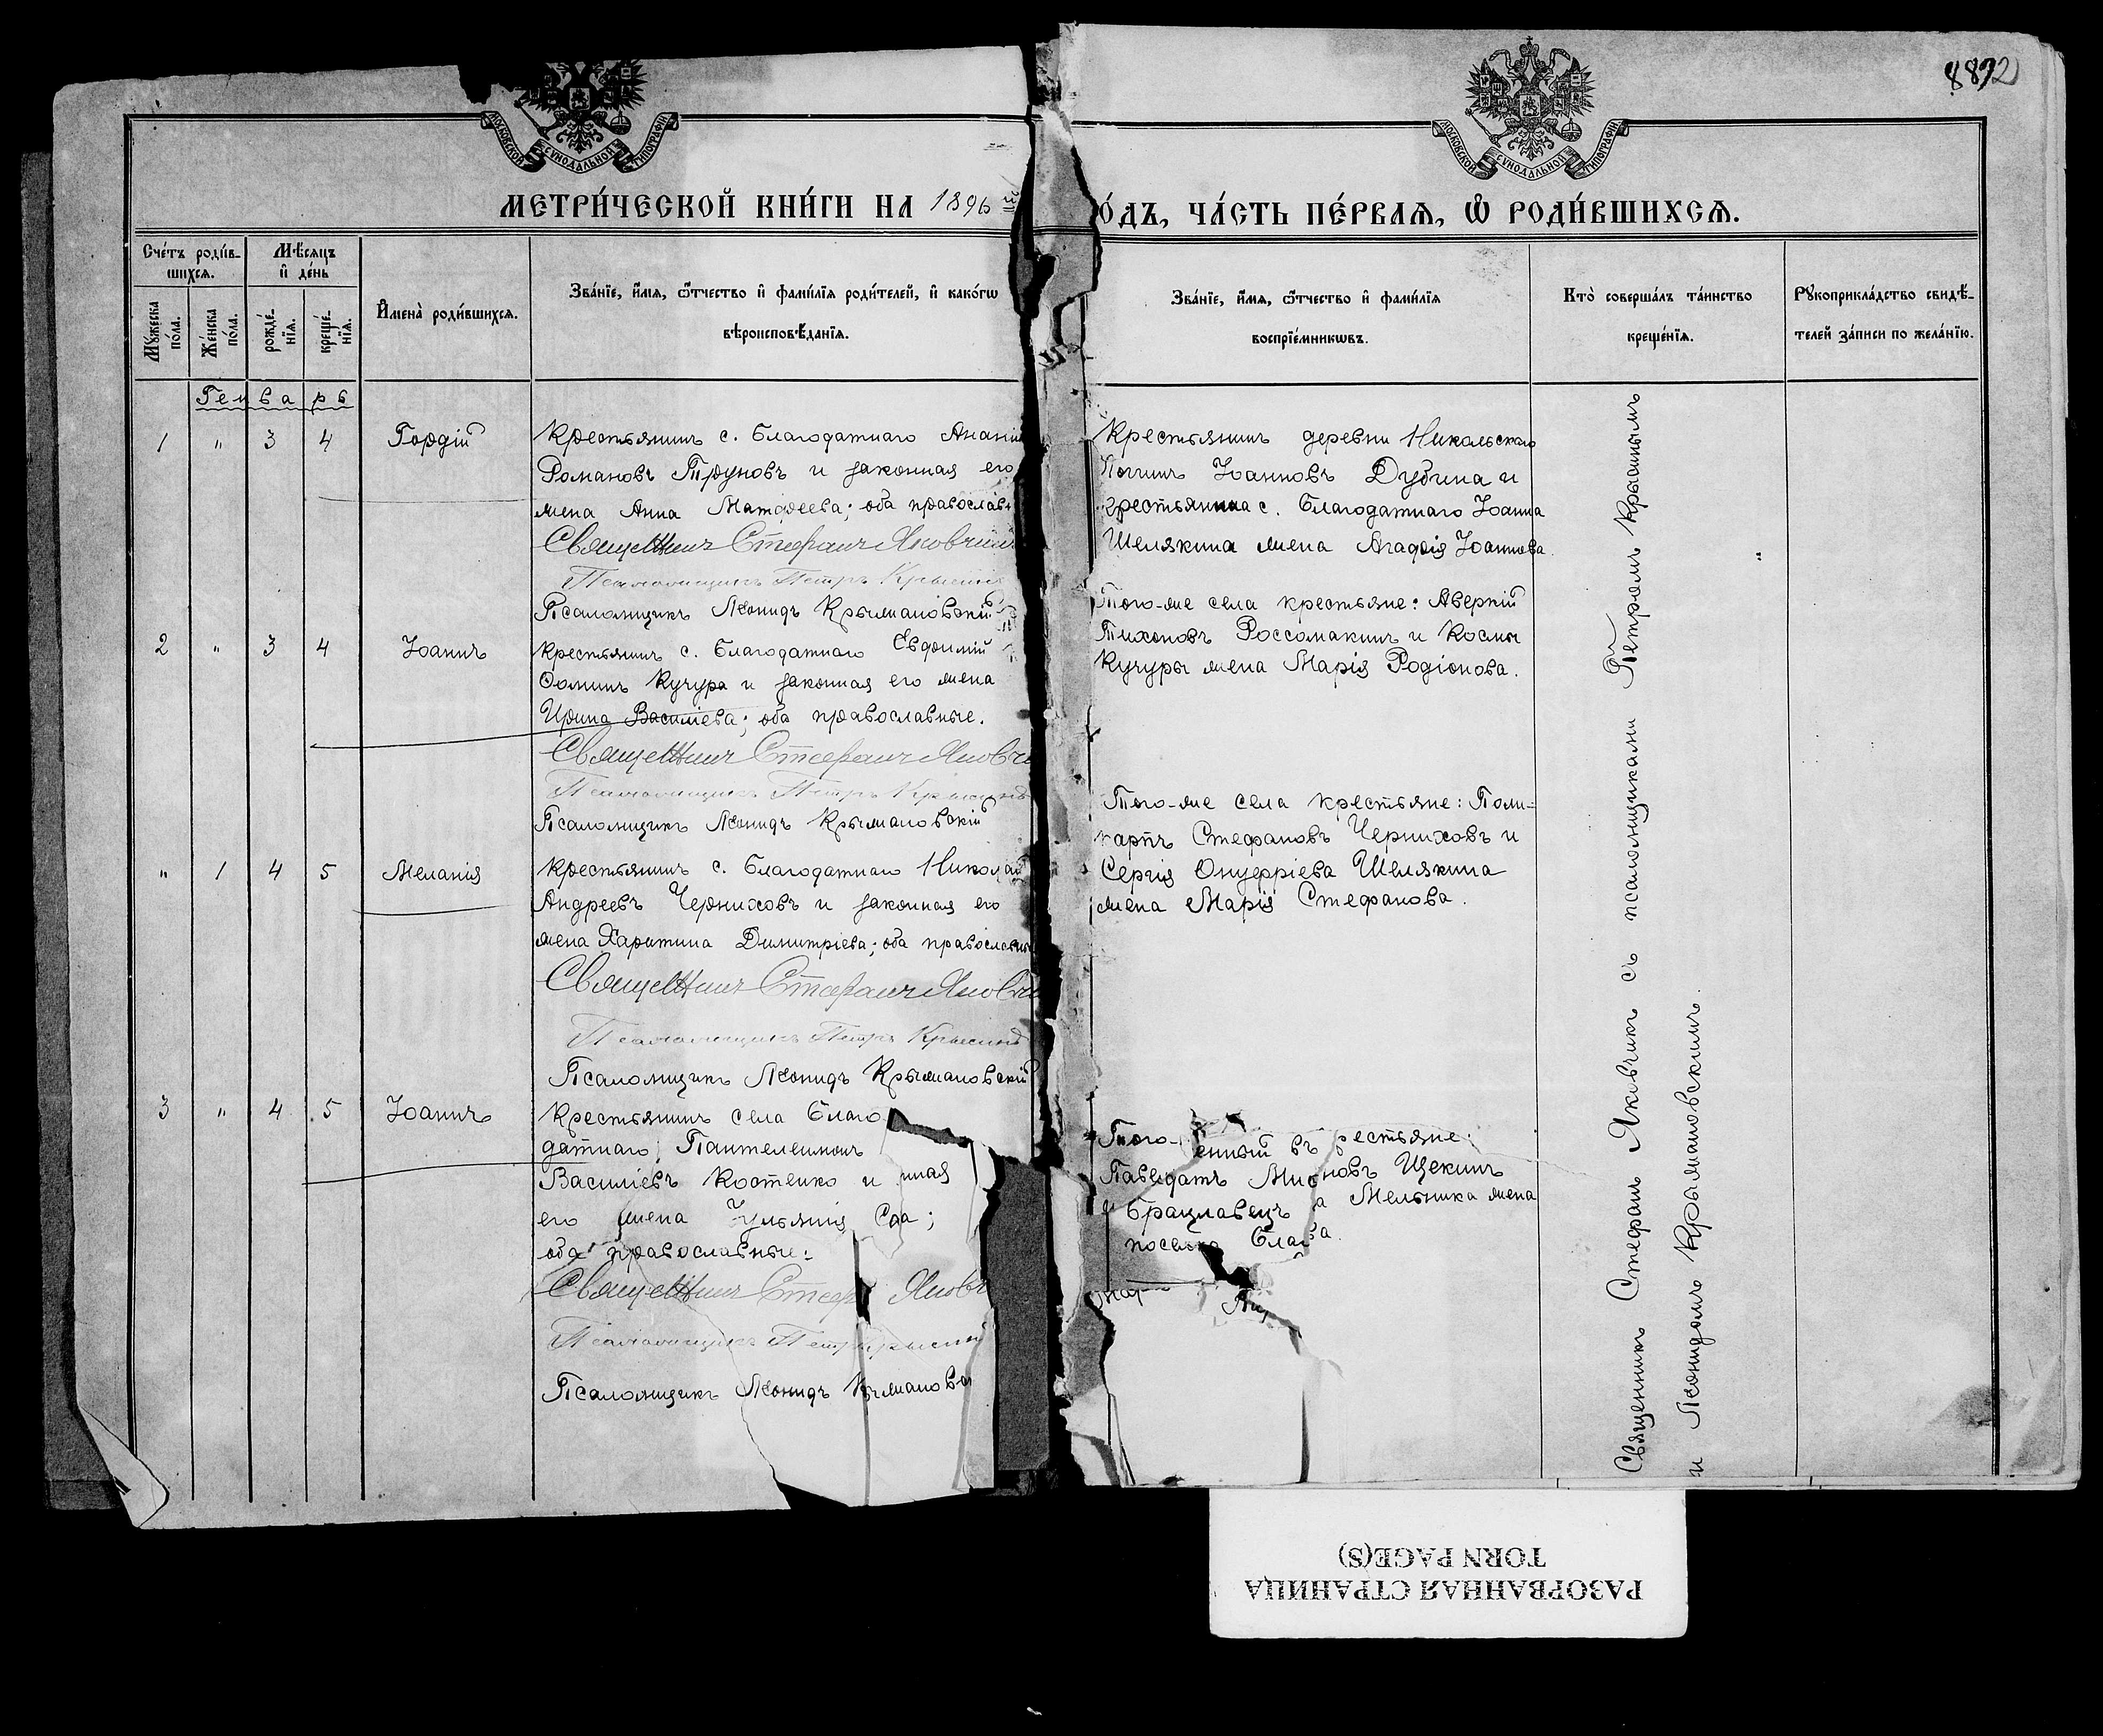 8892
МОСКОВСКОЙ СѴНОДАЛЬНОЙ ТИПОГРАФІИ
МОСКОВСКОЙ СѴНОДАЛЬНОЙ ТИПОГРАФІИ
МЕТРИ́ЧЕСКОЙ КНИ́ГИ НА 1896 й
О́ДЪ, ЧА́СТЬ ПЕ́РВАЯ, Ѿ РОДИ́ВШИХСЯ.
Сче́тъ роди́в-
шихся.
Мꙋ́жеска по́ла.
Же́нска по́ла.
Мѣ́сяцъ
и҆ де́нь
рожде́-
нїя.
креще́-
нїя.
И҆мена̀ роди́вшихся.
Зва́нїе, и҆́мя, ѻ҆́тчество и҆ фами́лїя роди́телей, и҆ како́гѡ
вѣроисповѣ́данїя.
Зва́нїе, и҆́мя, ѻ҆́тчество и҆ фами́лїя
воспрїе́мникѡвъ.
Кто̀ соверша́лъ та́инство
креще́нїя.
Рꙋкоприкла́дство свидѣ́-
телей за́писи по жела́нїю.
Генварь
1 " 3 4 Гордій
Крестьянинъ с. Благодатнаго Ананій
Романовъ Труновъ и законная его
жена Анна Матѳеева; оба православн
Священникъ Стефанъ Яковчик
Псаломщикъ Петръ Крысинъ
Псаломщикъ Леонидъ Крыжановскій
Крестьянинъ деревни Никольскаго
Логгинъ Іоанновъ Дубина и
крестьянина с. Благодатнаго Іоанна
Шелякина жена Агафія Іоаннова.
2 " 3 4 Іоаннъ
Крестьянинъ с. Благодатнаго Евфимій
Ѳоминъ Кучура и законная его жена
Ирина Василіева; оба православные.
Священникъ Стефанъ Яковчи
Псаломщикъ Петръ Крысинъ
Псаломщикъ Леонидъ Крыжановскій
Того-же села крестьяне: Аверкій
Тихоновъ Россомакинъ и Космы
Кучуры жена Марія Родіонова.
" 1 4 5 Меланія
Крестьянинъ с. Благодатнаго Николай
Андреевъ Черниховъ и законная его
жена Харитина Димитріева; оба православные
Священникъ Стефанъ Яковчи
Псаломщикъ Петръ Крысинъ
Псаломщикъ Леонидъ Крыжановскій
Того-же села крестьяне: Поли-
карпъ Стефановъ Черниховъ и
Сергія Онуфріева Шелякина
жена Марія Стефанова.
3 " 4 5 Іоаннъ
Крестьянинъ села Благо
датнаго Пантелеимонъ
Василіевъ Костенко и нная
его жена Іульянія
оба православные:
Священникъ Стеф Яковч
Псаломщикъ Петръ Крысин
Псаломщикъ Леонидъ К жановс
Того- енный въ рестьяне:
Мироновъ Щекинъ
Брацлавецъ а Мельника жена
Священникъ Стефанъ Яковчикъ съ псаломщиками Петромъ Крысинымъ
и Леонидомъ Крыжановскимъ.
РАЗОРВАННАЯ СТРАНИЦА
TORN PAGE(S)